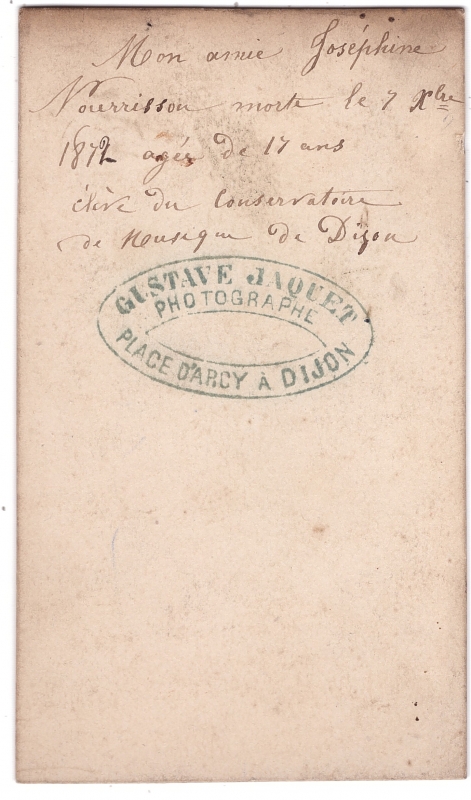 Mon amie Joséphine
Nourrisson morte le 7 Xbre
1872 agée de 17 ans
élève du Conservatoire
de Musique de Dijon
GUSTAVE JAQUET
PHOTOGRAPHE
PLACE D'ARCY À DIJON